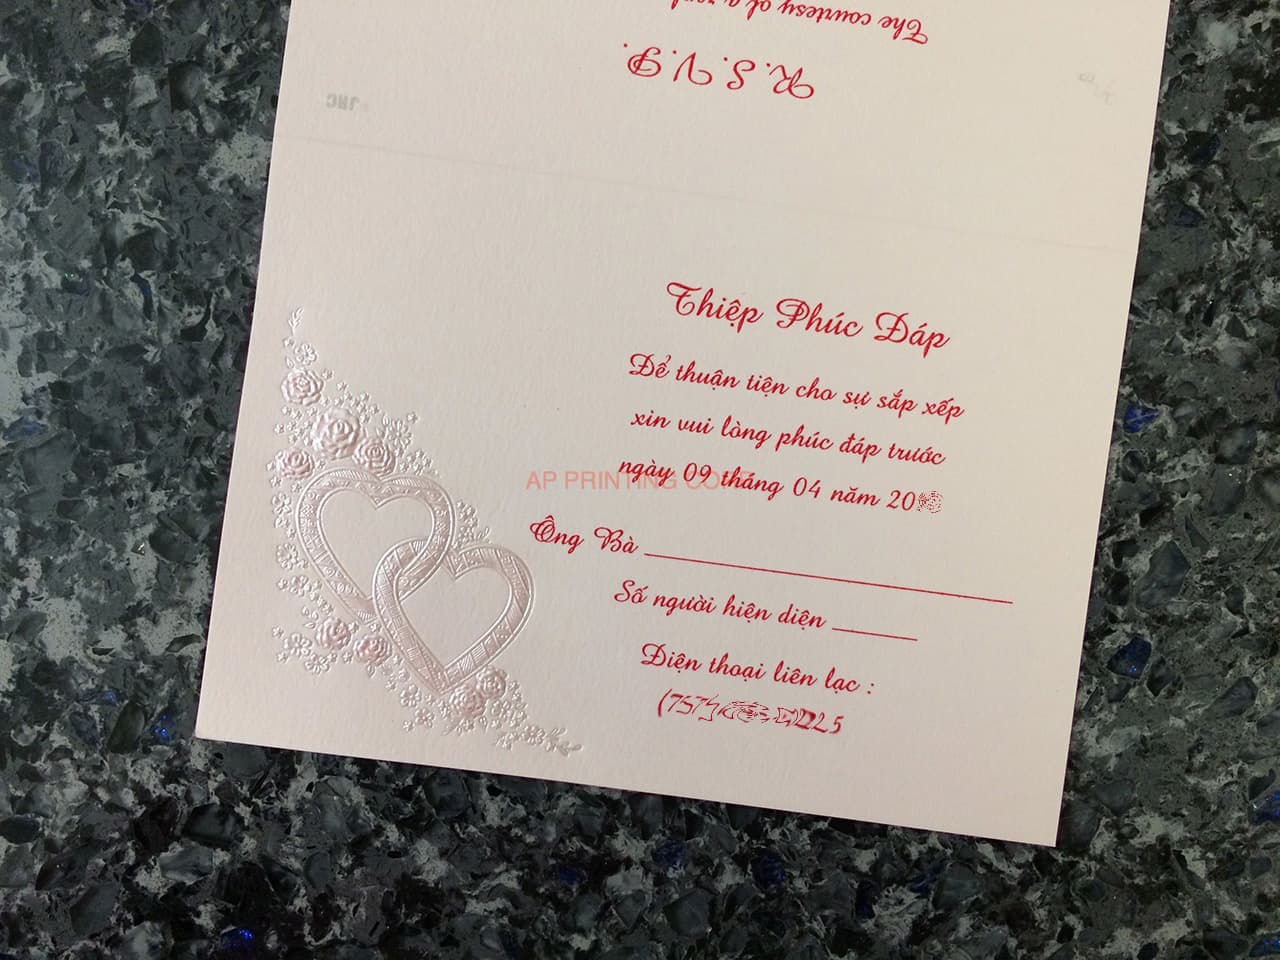 R. S. V. P.
The courtesy of a
JRC
Thiệp Phúc Đáp
Để thuận tiện cho sự sắp xếp
xin vui lòng phúc đáp trước
ngày 09 tháng 04 năm 20
AP PRINTING
Ông Bà
Số người hiện diện
Điện thoại liên lạc :